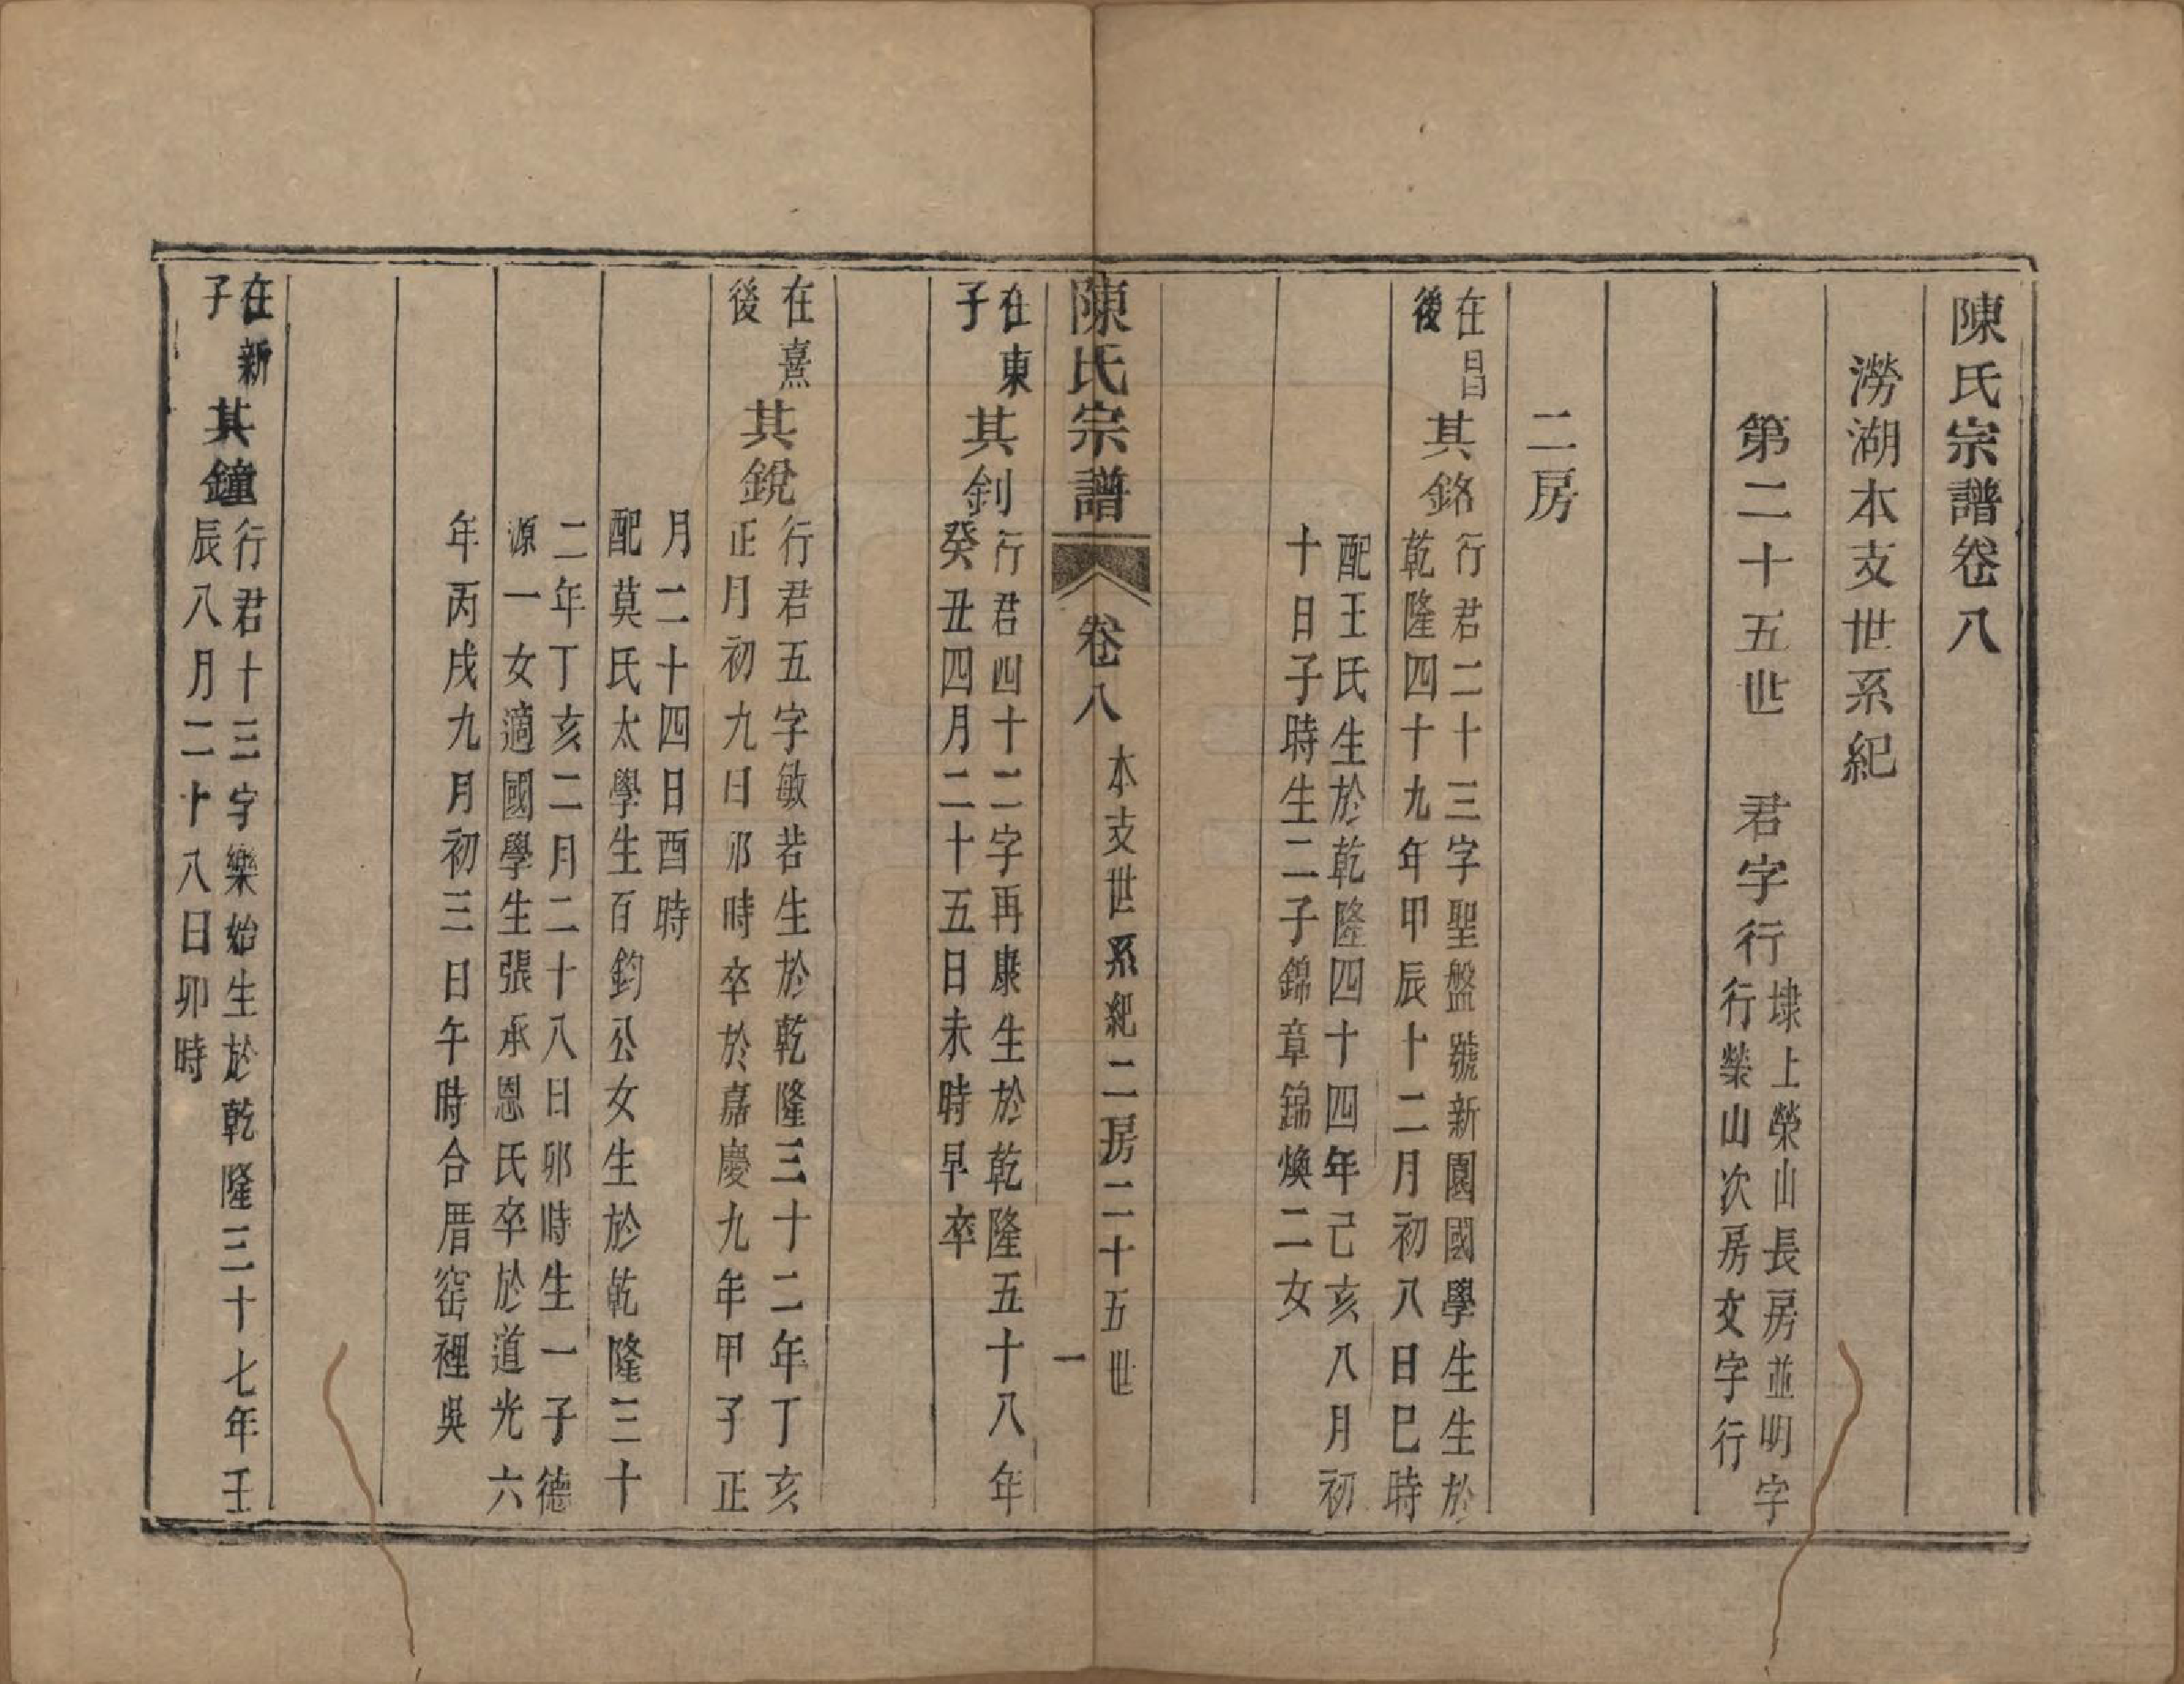 陳氏宗譜卷八
澇湖本支世系紀
第二十五世 君字行
埭上榮山長房並明字
行榮山次房文字行
二房
在昌
後
其銘
行君二十三字聖盤號新園國學生生於
乾隆四十九年甲辰十二月初八日巳時
配王氏生於乾隆四十四年己亥八月初
十日子時生二子錦章錦煥二女
陳氏宗譜
卷八
本支世系紀二房二十五世
一
在東
子
其釗
行君四十二字再康生於乾隆五十八年
癸丑四月二十五日未時早卒
在熹
後
其銳
行君五字敏若生於乾隆三十二年丁亥
正月初九日卯時卒於嘉慶九年甲子正
月二十四日酉時
配莫氏太學生百鈞公女生於乾隆三十
二年丁亥二月二十八日卯時生一子德
源一女適國學生張承恩氏卒於道光六
年丙戌九月初三日午時合厝窑裡吳
在新
子
其鐘
行君十三字樂始生於乾隆三十七年壬
辰八月二十八日卯時